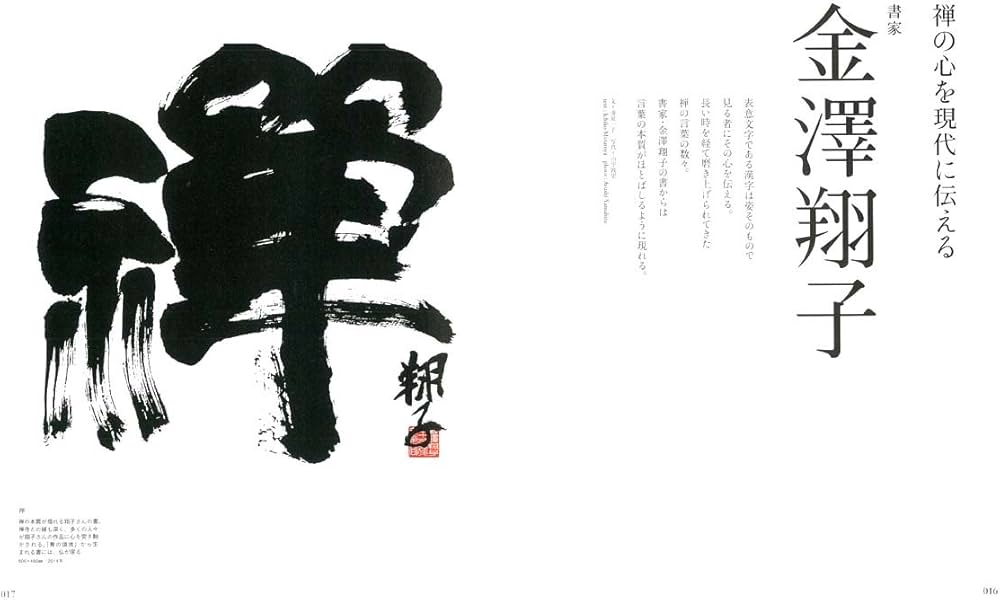 禅の心を現代に伝える
書家
金澤翔子
表意文字である漢字は姿そのもので
見る者にその心を伝える。
長い時を経て磨き上げられてきた
禅の言葉の数々。
書家・金澤翔子の書からは
言葉の本質がほとばしるように現れる。
禅
翔子
禅
禅の本質が顕れる翔子さんの書。
禅寺との縁も深く、多くの人々
が翔子さんの作品に心を突き動
かされる。
まれる書には、仏が宿る
2014年
017
016